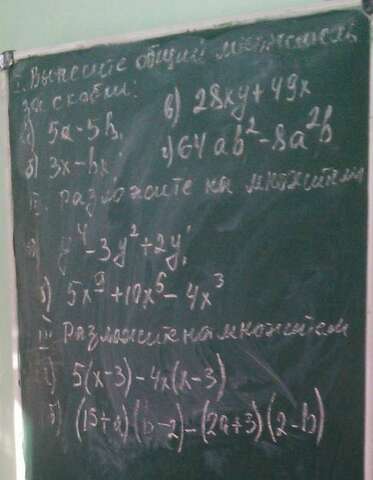 I. Вынесите общий множитель
за скобки:
а) 5a-5b;
в) 28xy+49x
б) 3x-bx
г) 64ab²-8a²b
II. разложите на множители
а) y⁴-3y²+2y;
б) 5x⁹+10x⁶-4x³
III разложите на множители
а) 5(x-3)-4x(x-3)
б) (15+a)(b-2)-(2a+3)(2-b)